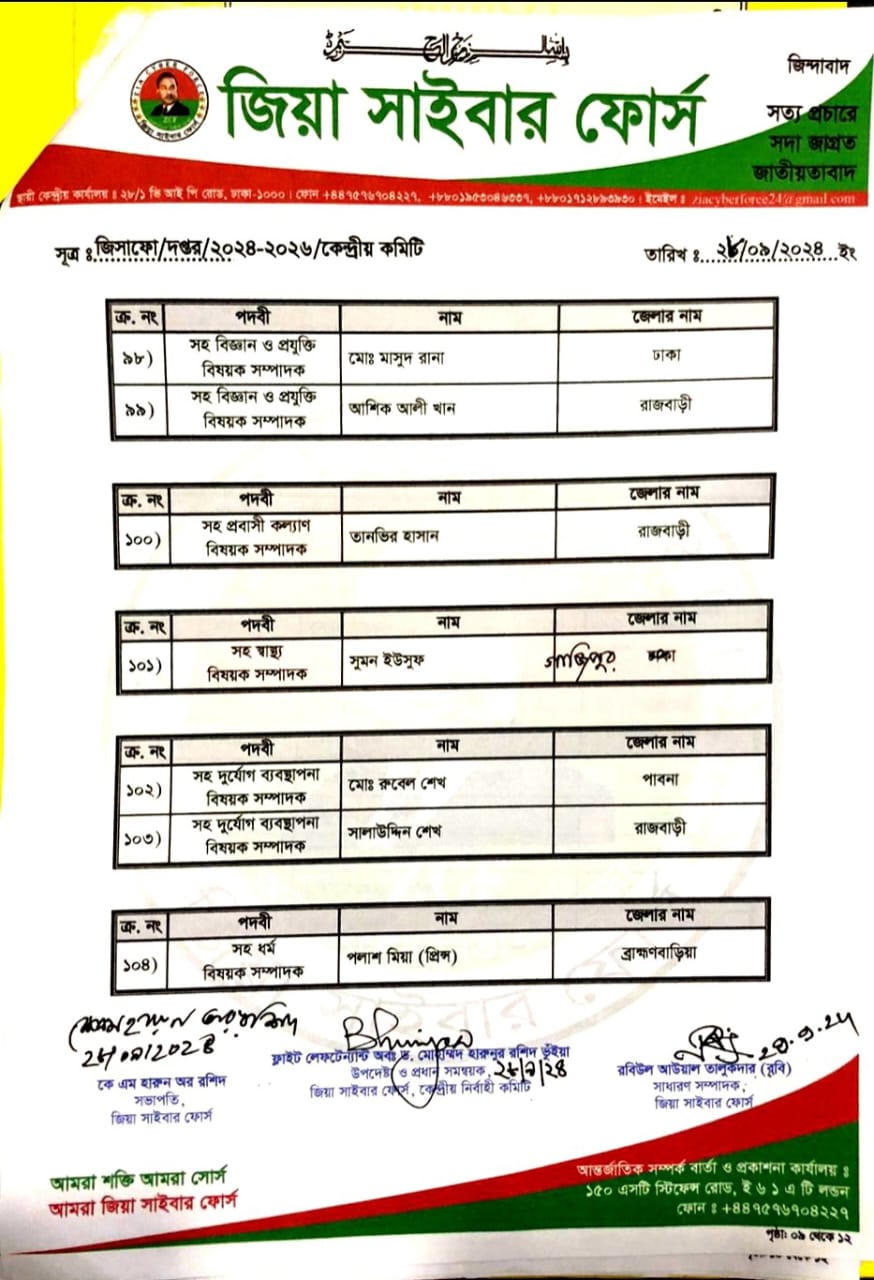 জিয়া সাইবার ফোর্স
ZIA CYBER FORCE
জিয়া সাইবার ফোর্স
জিন্দাবাদ
সত্য প্রচারে
সদা জাগ্রত
জাতীয়তাবাদ
স্থায়ী কেন্দ্রীয় কার্যালয় ঃ ২৮/১ ভি আই পি রোড, ঢাকা-১০০০। ফোন +৪৪৭৫৭৬৭০৪২২৭, +৮৮০১৯৫৩০৪৬৩৩৭, +৮৮০১৭১২৮৯৩৯৩০। ইমেইল ঃ ziacyberforce24@gmail.com
সূত্র ঃ জিসাফো/দপ্তর/২০২৪-২০২৬/কেন্দ্রীয় কমিটি
তারিখ ঃ ২৮/০৯/২০২৪ ইং
ক্র. নং পদবী নাম জেলার নাম
৯৮) সহ বিজ্ঞান ও প্রযুক্তি বিষয়ক সম্পাদক মোঃ মাসুদ রানা ঢাকা
৯৯) সহ বিজ্ঞান ও প্রযুক্তি বিষয়ক সম্পাদক আশিক আলী খান রাজবাড়ী
ক্র. নং পদবী নাম জেলার নাম
১০০) সহ প্রবাসী কল্যাণ বিষয়ক সম্পাদক তানভির হাসান রাজবাড়ী
ক্র. নং পদবী নাম জেলার নাম
১০১) সহ স্বাস্থ্য বিষয়ক সম্পাদক সুমন ইউসুফ গাজিপুর ঢাকা
ক্র. নং পদবী নাম জেলার নাম
১০২) সহ দুর্যোগ ব্যবস্থাপনা বিষয়ক সম্পাদক মোঃ রুবেল শেখ পাবনা
১০৩) সহ দুর্যোগ ব্যবস্থাপনা বিষয়ক সম্পাদক সালাউদ্দিন শেখ রাজবাড়ী
ক্র. নং পদবী নাম জেলার নাম
১০৪) সহ ধর্ম বিষয়ক সম্পাদক পলাশ মিয়া (প্রিন্স) ব্রাহ্মণবাড়িয়া
২৮/০৯/২০২৪
কে এম হারুন অর রশিদ
সভাপতি,
জিয়া সাইবার ফোর্স
Bhuiyan
ফ্লাইট লেফটেন্যান্ট অবঃ ড. মোহাম্মদ হারুনুর রশিদ ভুঁইয়া
উপদেষ্টা ও প্রধান সমন্বয়ক, ২৮/৯/২৪
জিয়া সাইবার ফোর্স, কেন্দ্রীয় নির্বাহী কমিটি
২৮.৯.২৪
রবিউল আউয়াল তালুকদার (রবি)
সাধারণ সম্পাদক,
জিয়া সাইবার ফোর্স
আমরা শক্তি আমরা সোর্স
আমরা জিয়া সাইবার ফোর্স
আন্তর্জাতিক সম্পর্ক বার্তা ও প্রকাশনা কার্যালয় ঃ
১৫০ এসটি স্টিফেন্স রোড, ই ৬ ১ এ টি লন্ডন
ফোন ঃ +৪৪৭৫৭৬৭০৪২২৭
পৃষ্ঠাঃ ০৯ থেকে ১২